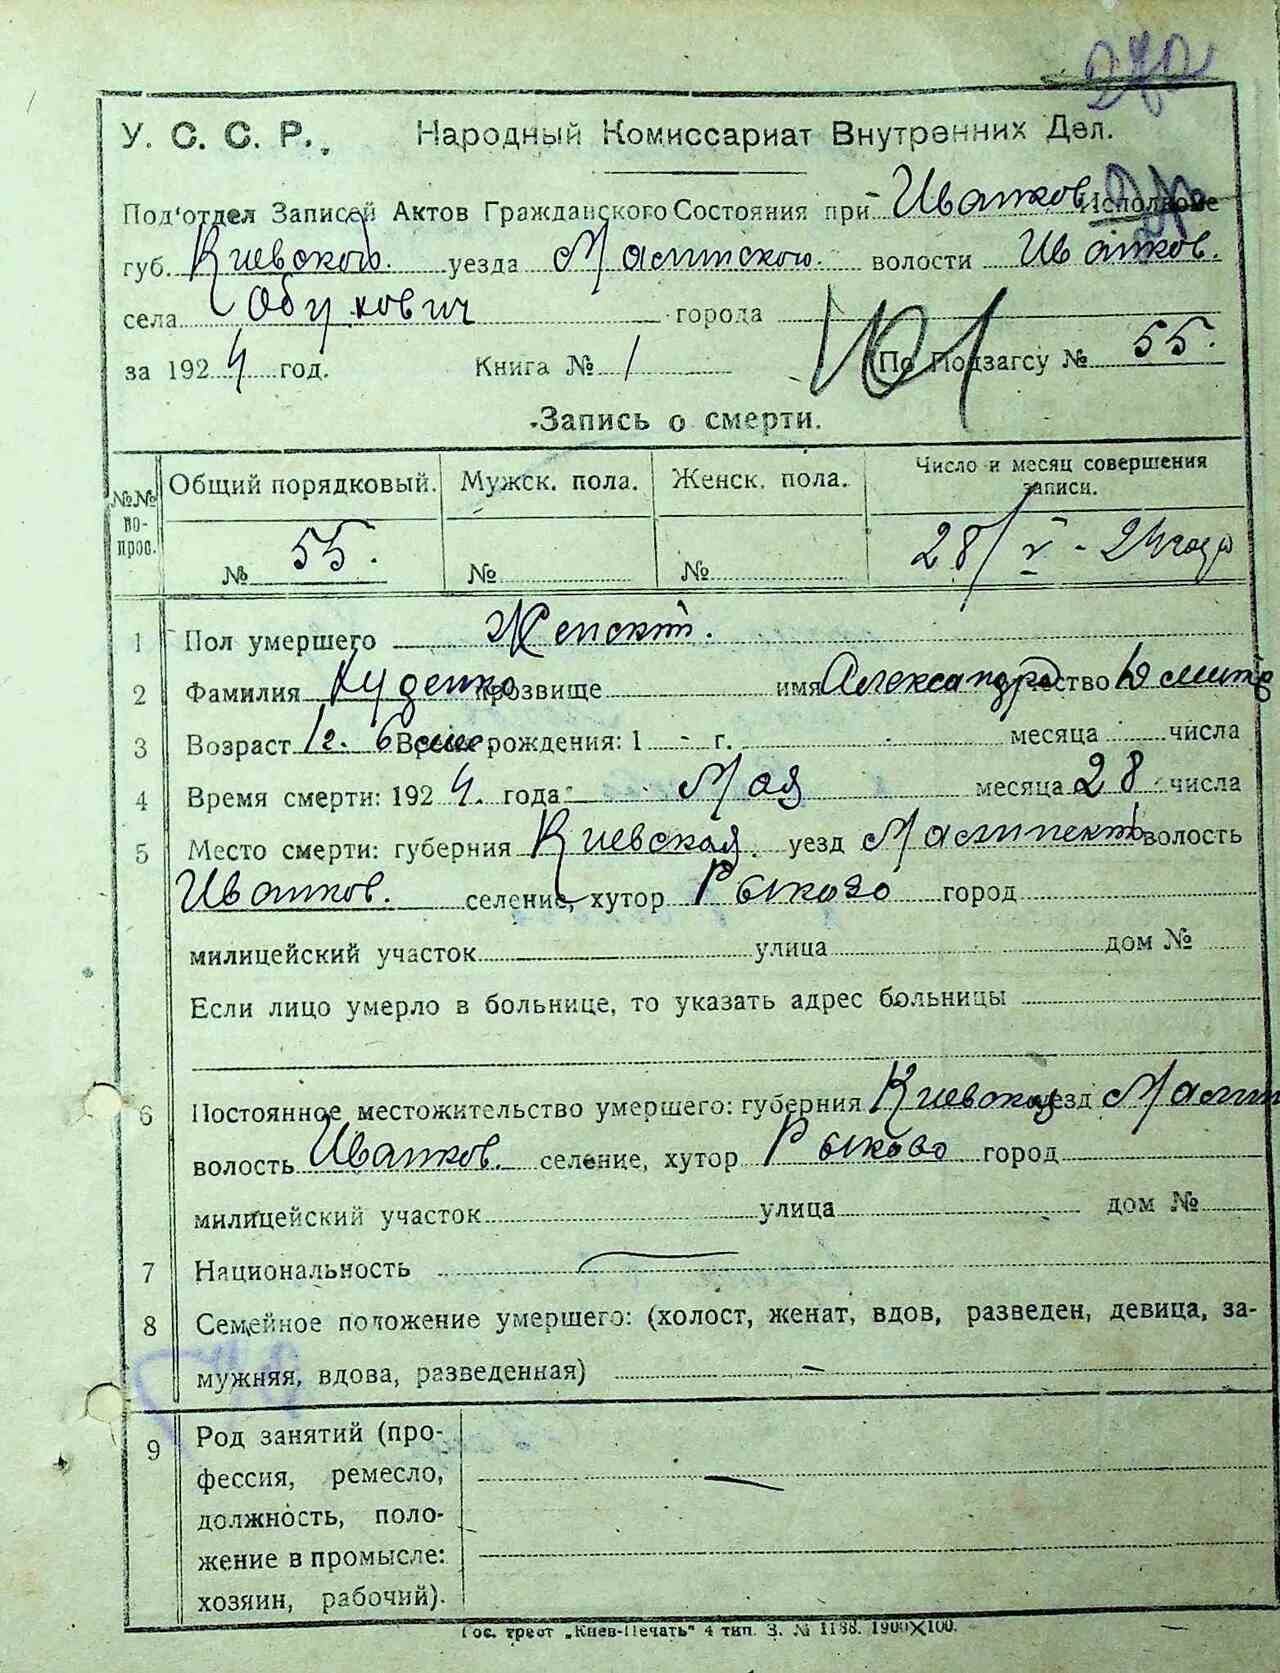 У. С. С. Р. Народный Комиссариат Внутренних Дел.
Под'отдел Записей Актов Гражданского Состояния при Иванков Исполкоме
губ. Киевского уезда Малинского волости Иванков.
села Обухович города
за 1924 год. Книга № 1 По Подзагсу № 55.
101
Запись о смерти.
№№ вопрос. Общий порядковый. Мужск. пола. Женск. пола. Число и месяц совершения записи.
№ 55. № № 28/V - 24 года
1 Пол умершего Женский.
2 Фамилия Куденко прозвище имя Александра отчество Дмитр
3 Возраст 1 г. 6 мес Время рождения: 1 - г. месяца числа
4 Время смерти: 1924. года Мая месяца 28 числа
5 Место смерти: губерния Киевская уезд Малинский волость
Иванков. селение, хутор Рыково город
милицейский участок улица дом №
Если лицо умерло в больнице, то указать адрес больницы
6 Постоянное местожительство умершего: губерния Киевская уезд Малин
волость Иванков. селение, хутор Рыково город
милицейский участок улица дом №
7 Национальность —
8 Семейное положение умершего: (холост, женат, вдов, разведен, девица, за-
мужняя, вдова, разведенная) —
9 Род занятий (про-
фессия, ремесло, —
должность, поло-
жение в промысле:
хозяин, рабочий).
Гос. трест „Киев-Печать" 4 тип. З. № 1188. 1900×100.